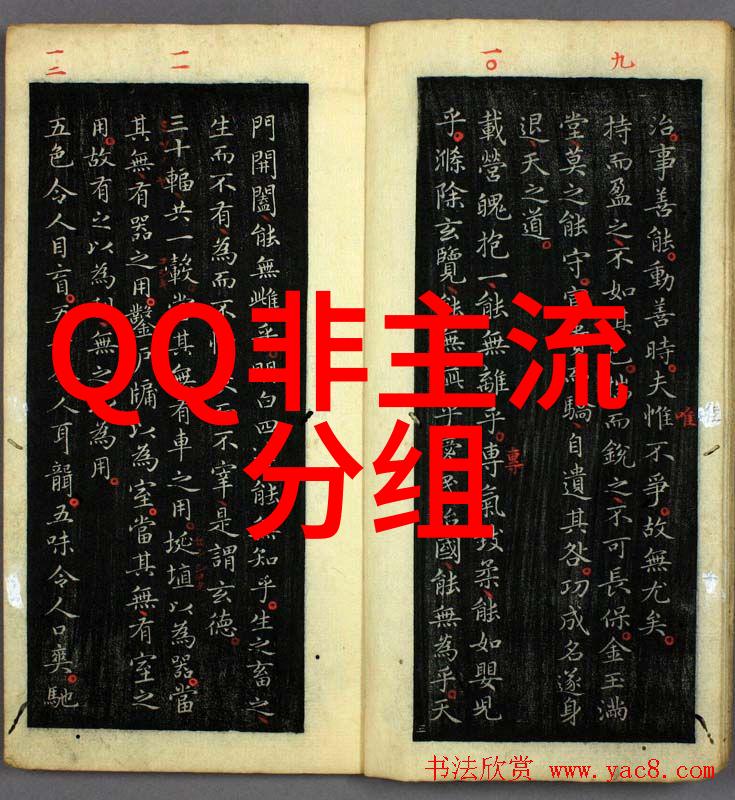 QQ非主流
分组
九
一〇
一一
一二
治事善能動善時夫惟不爭故無尤矣
唯
持而盈之不如其已揣而銳之不可長保金玉滿
堂莫之能守富貴而驕自遺其咎功成名遂身
退天之道
載營魄抱一能無離乎專氣致柔能如嬰兒
專
乎滌除玄覽能無疵乎愛民治國能無為乎天
門開闔能無雌乎明白四能無知乎生之畜之
生而不有為而不恃長而不宰是謂玄德
三十輻共一轂當其無有車之用埏埴以為器當
其無有器之用鑿戶牖以為室當其無有室之
用故有之以為利無之以為用
五色令人目盲五令人耳聾五味令人口爽馳
书法欣赏 www.yac8.com